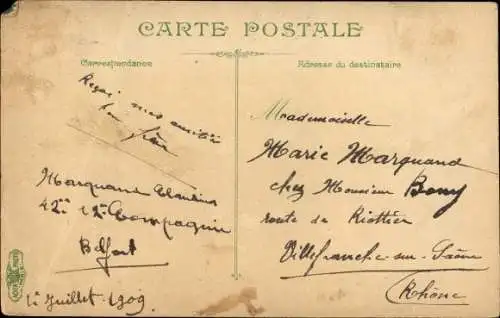 CARTE POSTALE
Correspondance
Adresse du destinataire
Reçoi mes amitiés
ton frère
Marquand Claudius
42ème 12e Compagnie
Belfort
1er Juillet 1909
Mademoiselle
Marie Marquand
chez Monsieur Bony
route de Riottier
Villefranche-sur-Saône
(Rhône)